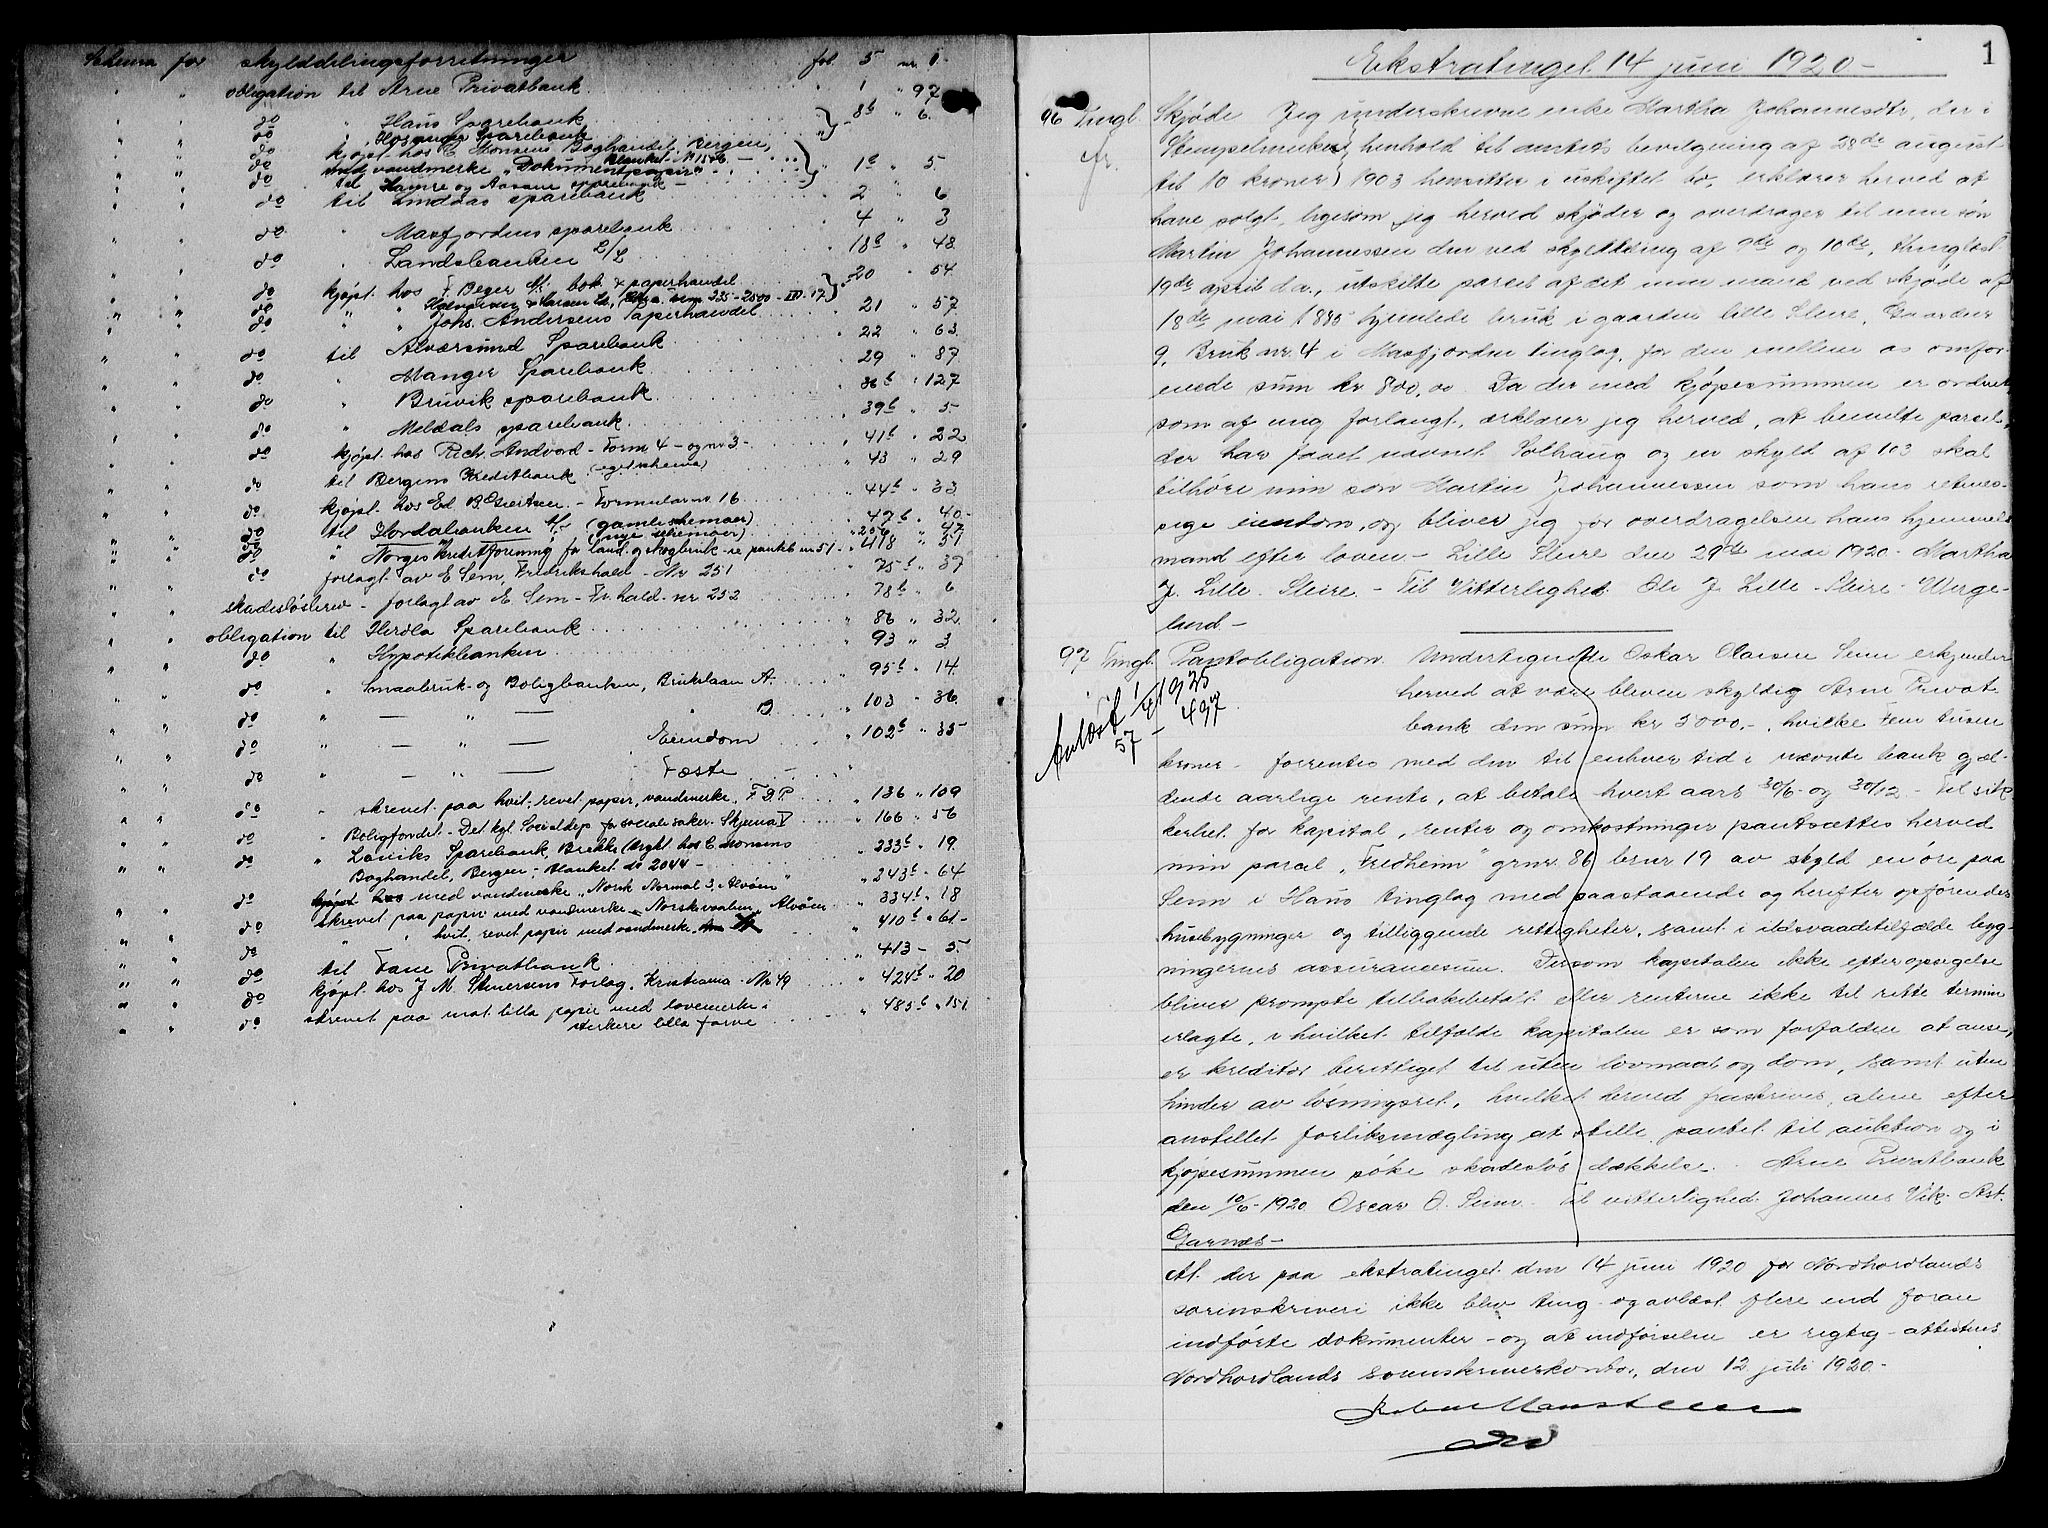 Schema for skylddelingsforretninger fol. 5 nr. 1.
" " obligation til Arne Privatbank " 1 " 97
" " do " Haus Sparebank " 8b " 6.
" " do " Hosanger Sparebank
" " do kjøpt hos E Monsens Boghandel, Bergen,
" " do med vandmerke "Dokumentpapir" Blanket No 1546 " 1b " 5
" " do til Hamre og Aasane sparebank
" " do til Lindaas sparebank " 2 " 6
" " do " Masfjordens sparebank " 4 " 3
" " do " Landsbanken A/S " 18b " 48
" " do kjøpt hos F Beyer A/S bok & papirhandel " 20 " 54
" " do " " Halvorsen & Larsen Ld, 335-2500-III-17
" " do " " Johs. Andersens Papirhandel " 21 " 57
" " do til Alversund Sparebank " 22 " 63
" " do " Manger Sparebank " 29 " 87
" " do " Bruvik sparebank " 36b " 127
" " do " Meldals sparebank " 39b " 5
" " do kjøpt hos Rich. Andvord - Form 4 - og nr 3 - " 41b " 22
" " do til Bergens Kreditbank (eget schema) " 43 " 29
" " do kjøpt hos Ed B Giertsen - Formular nr 16 " 44b " 33
" " do til Hordabanken A/S (gamle schemaer) " 47b " 40
" " do (nye schemaer) " 47
" " do " Norges Kreditforening for land og skogbruk - " 418 " 51
" " do forlagt av E Sem, Fredrikshald - Nr 251 " 75b " 37
" " skadesløsbrev - forlagt av E. Sem - Fr.hald - nr 252 " 78b " 6
" " obligation til Herdla Sparebank " 86 " 32
" " do " Hypotekbanken " 93 " 3
" " do " Smaabruk- og Boligbanken, Brukslaan A. " 95b " 14
" " do " — " — " B " 103 " 36
" " do " — " — Eiendom " 102b " 35
" " do " — " — Fæste
" " do " skrevet paa hvit, revet papir, vandmerke, F.D.P. " 136 " 109
" " do " Boligfondet - Det kgl. Socialdep for sociale saker. Skjema V " 166 " 56
" " do " Laviks Sparebank, Brekke (trykt hos E Monsens " 233b " 19
Boghandel, Bergen - Blanket nr 2044 - " 243b " 64
" " do med vandmerke "Norsk Normal 3, Alvøen" " 334b " 18
" " do skrevet paa papir med vandmerke "Alvøen " 410b " 61
" " do " " hvit, revet papir med vandmerke " 413 - 5
" " do til Fane Privatbank
" " do kjøpt hos J M Stenersens Forlag, Kristiania - Nr 49 " 424b " 20
" " do skrevet paa mat lilla papir med lovemerke i " 485b " 151
sterkere lilla farve
1
Ekstratinget 14 juni 1920 -
96 Tingl. Skjøde Jeg underskrevne enke Martha Johannesdtr, der i
Stempelmerker henhold til amtets bevilgning af 28de august
til 10 kroner) 1903 hensitter i uskiftet bo, erklærer herved at
have solgt, ligesom jeg herved skjøder og overdrager til min søn
Martin Johannessen den ved skylddeling af 9de og 10de, thinglæst
19de april d.a., utskilte parcel af det min mand ved skjøde af
18de mai 1885 hjemlede bruk i gaarden lille Sleire, Gaardsnr
9, Bruk nr. 4 i Masfjorden tinglag, for den mellem os omfor-
enede sum kr 800,00. Da der med kjøpesummen er ordnet
som af mig forlangt, erklærer jeg herved, at bemeldte parcel,
der har faaet navnet Solhaug og en skyld af 103 skal
tilhøre min søn Martin Johannessen som hans retmes-
sige eiendom, og bliver jeg for overdragelsen hans hjemmels-
mand efter loven - Lille Sleire den 29de mai 1920 - Martha
J. Lille - Sleire. - Til Vitterlighed: Ole J. Lille - Sleire - Werge-
land -
97 Tingl. Pantobligation. Undertegnede Oskar Olaisen Senn erkjender
herved at være bleven skyldig Arne Privat-
bank den sum kr 5000.-, hvilke Fem tusen
Avlæst 1925
57 - 497
kroner - forrentes med den til enhver tid i nævnte bank gjæl-
dende aarlige rente, at betale hvert aars 30/6- og 30/12 - Til sik-
kerhet for kapital, renter og omkostninger pantsættes herved
min parcel "Fredheim" grnr. 86 brnr 19 av skyld en øre paa
Senn i Haus tinglag med paastaaende og herefter opførendes
husebygninger og tilliggende rettigheter, samt i ildsvaadetilfælde byg-
ningernes assurancesum. Dersom kapitalen ikke efter opsigelse
bliver prompte tilbakebetalt eller renterne ikke til rette termin
erlagte, i hvilket tilfælde kapitalen er som forfalden at anse,
er kreditor berettiget til uten lovmaal og dom, samt uten
hinder av løsningsret, hvilket herved fraskrives, alene efter
anstillet forliksmægling at stille pantet til auktion og i
kjøpesummen søke skadesløs dækkelse. - Arne Privatbank
den 10/6-1920 Oscar O. Senn. Til vitterlighed: Johannes Vik. Ast.
Garnæs -
At der paa ekstratinget den 14 juni 1920 for Nordhordlands
sorenskriveri ikke blev ting- og avlæst flere end foran
indførte dokumenter - og at indførselen er rigtig - attesteres
Nordhordlands sorenskriverkontor, den 12 juli 1920 -